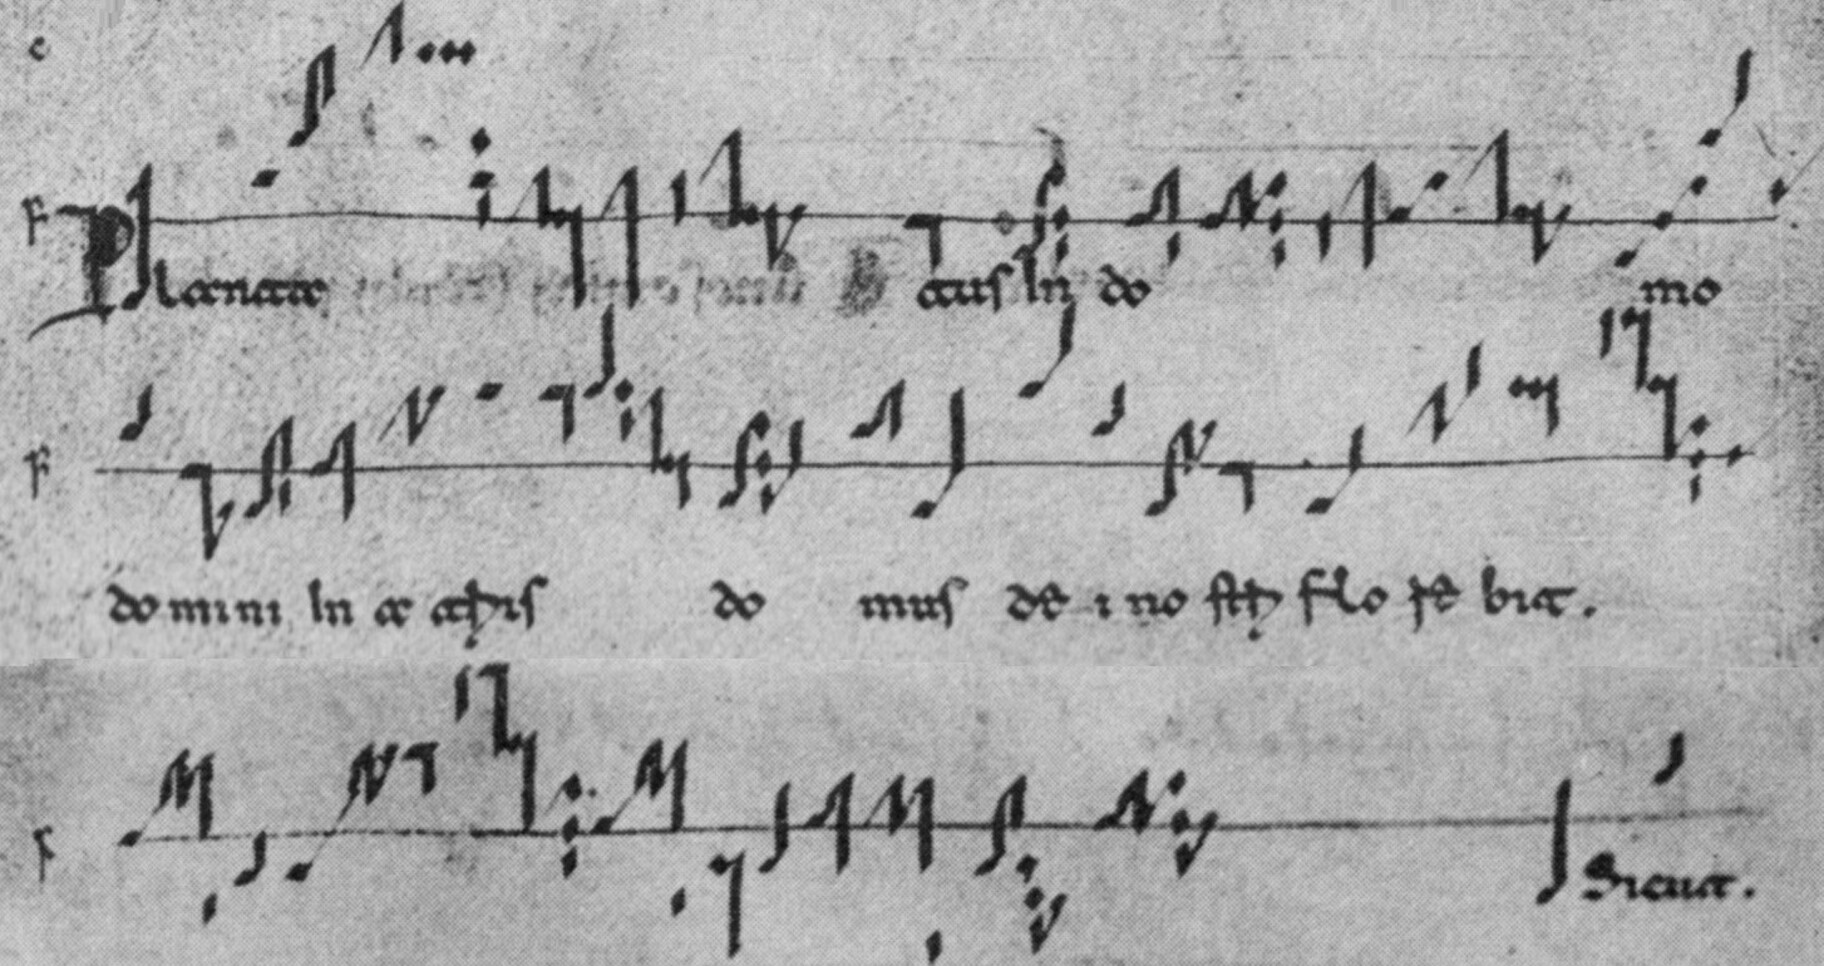 c
F Planta tus In do mo
F do mi ni In a triis do mus de i no stri flo re bit.
F Sicut.